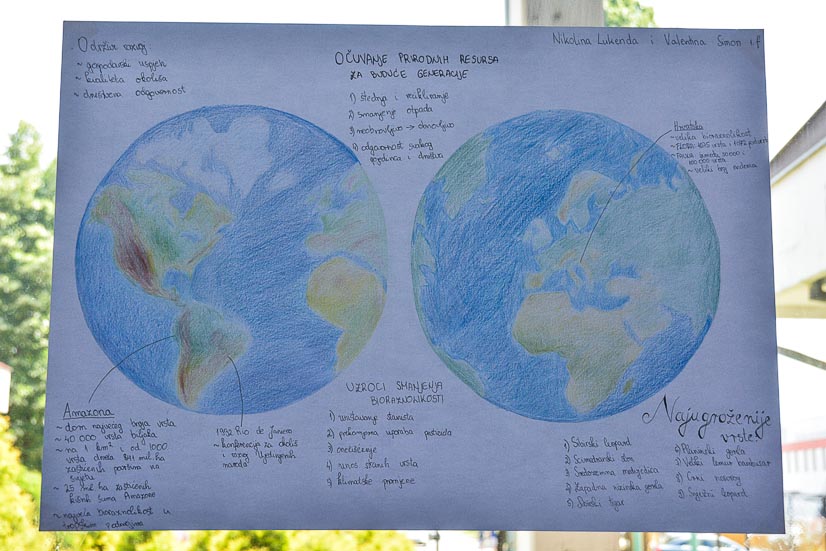 Održivi razvoj
~ gospodarski uspjeh
~ kvaliteta okoliša
~ društvena odgovornost
OČUVANJE PRIRODNIH RESURSA
ZA BUDUĆE GENERACIJE
1) štednja i recikliranje
2) smanjenje otpada
3) neobnovljivo → obnovljivo
4) odgovornost svakog
pojedinca i društva
Nikolina Lukenda i Valentina Simon 1.f
Hrvatska
~ velika bioraznolikost
~ veliki broj endema
Amazona
~ dom najvećeg broja vrsta
~ 40 000 vrsta biljaka
~ na 1 km² i od 1000
vrsta drveta
zaštićenih površina na
svijetu
~ 25 mil ha zaštićenih
kišnih šuma Amazone
~ najveća bioraznolikost u
1992 Rio de Janeiro
~ konferencija za okoliš
i razvoj Ujedinjenih
naroda
UZROCI SMANJENJA
BIORAZNOLIKOSTI
1) uništavanje staništa
2) prekomjerna uporaba pesticida
3) onečišćenje
4) unos stranih vrsta
5) klimatske promjene
Najugroženije
vrste
1) Amurski leopard
2) Sumatranski slon
3) Sredozemna medvjedica
4) Zapadna nizinska gorila
5) Sibirski tigar
6) Planinski gorila
7) Veliki lemur bambusar
8) Crni nosorog
9) Snježni leopard